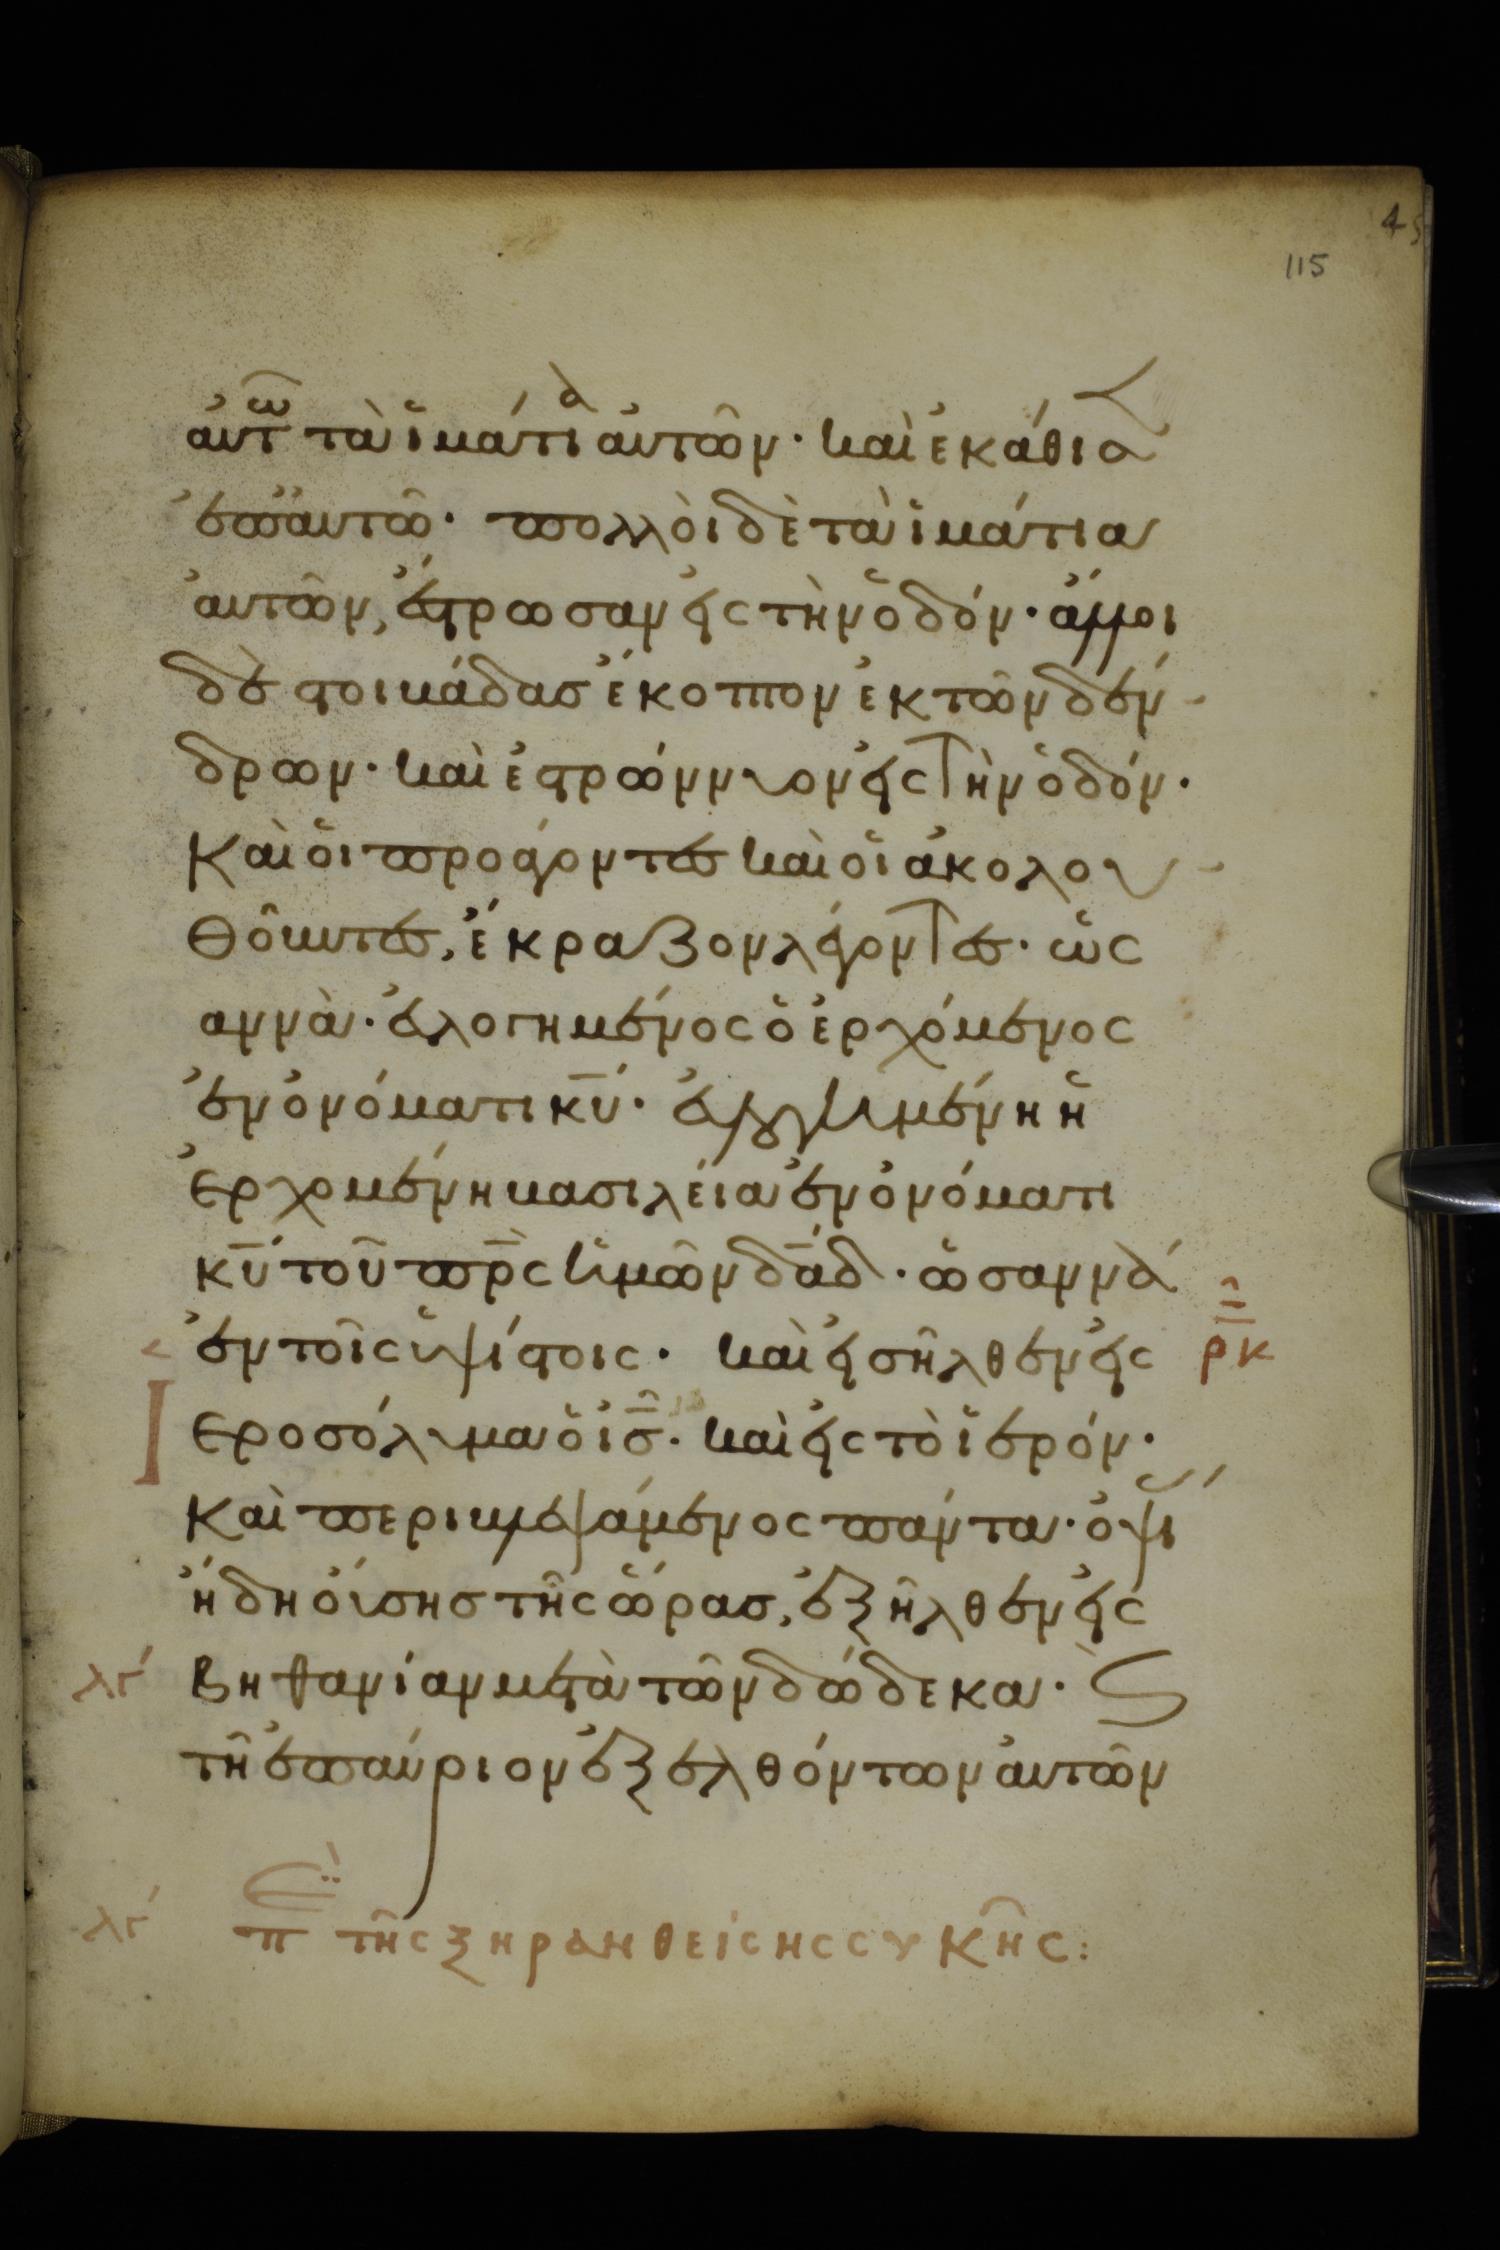 45
115
αὐτῶ τὰ ἱμάτια αὐτῶν· καὶ ἐκάθισεν
ἐπ' αὐτῶ· πολλοὶ δὲ τὰ ἱμάτια
αὐτῶν, ἔστρωσαν εἰς τὴν ὁδόν· ἄλλοι
δὲ στοιβάδας ἔκοπτον ἐκ τῶν δέν
δρων· καὶ ἐστρώννυον εἰς τὴν ὁδόν·
Καὶ οἱ προάγοντες καὶ οἱ ἀκολου
θοῦντες, ἔκραζον λέγοντες· ὡς
αννὰ· εὐλογημένος ὁ ἐρχόμενος
ἐν ὀνόματι κ̅υ̅· εὐλογημένη ἡ
ἐρχομένη βασιλεία ἐν ὀνόματι
κ̅υ̅ τοῦ π̅ρ̅ς ἡμῶν δ̅α̅δ· ὡσαννὰ
ἐν τοῖς ὑψίστοις· καὶ εἰσῆλθεν εἰς
ρκ
Ιεροσόλυμα ὁ ι̅ς̅· καὶ εἰς τὸ ἱερόν·
Καὶ περιβλεψάμενος πάντα· ὀψὶ
ἤδη οὔσης τῆς ὥρας, ἐξῆλθεν εἰς
λγ Βηθανίαν μετὰ τῶν δώδεκα· Καὶ
τῆ ἐπαύριον ἐξελθόντων αὐτῶν
λγ π τῆς ξηρανθείσης συκῆς: